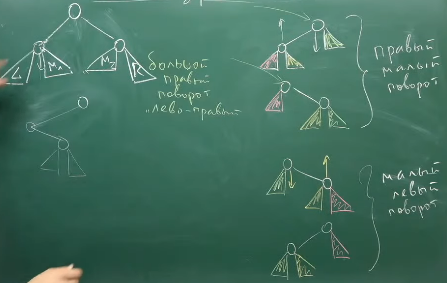 L M₁ M₂ R
большой
правый
поворот
лево-правый
правый
малый
поворот
малый
левый
поворот